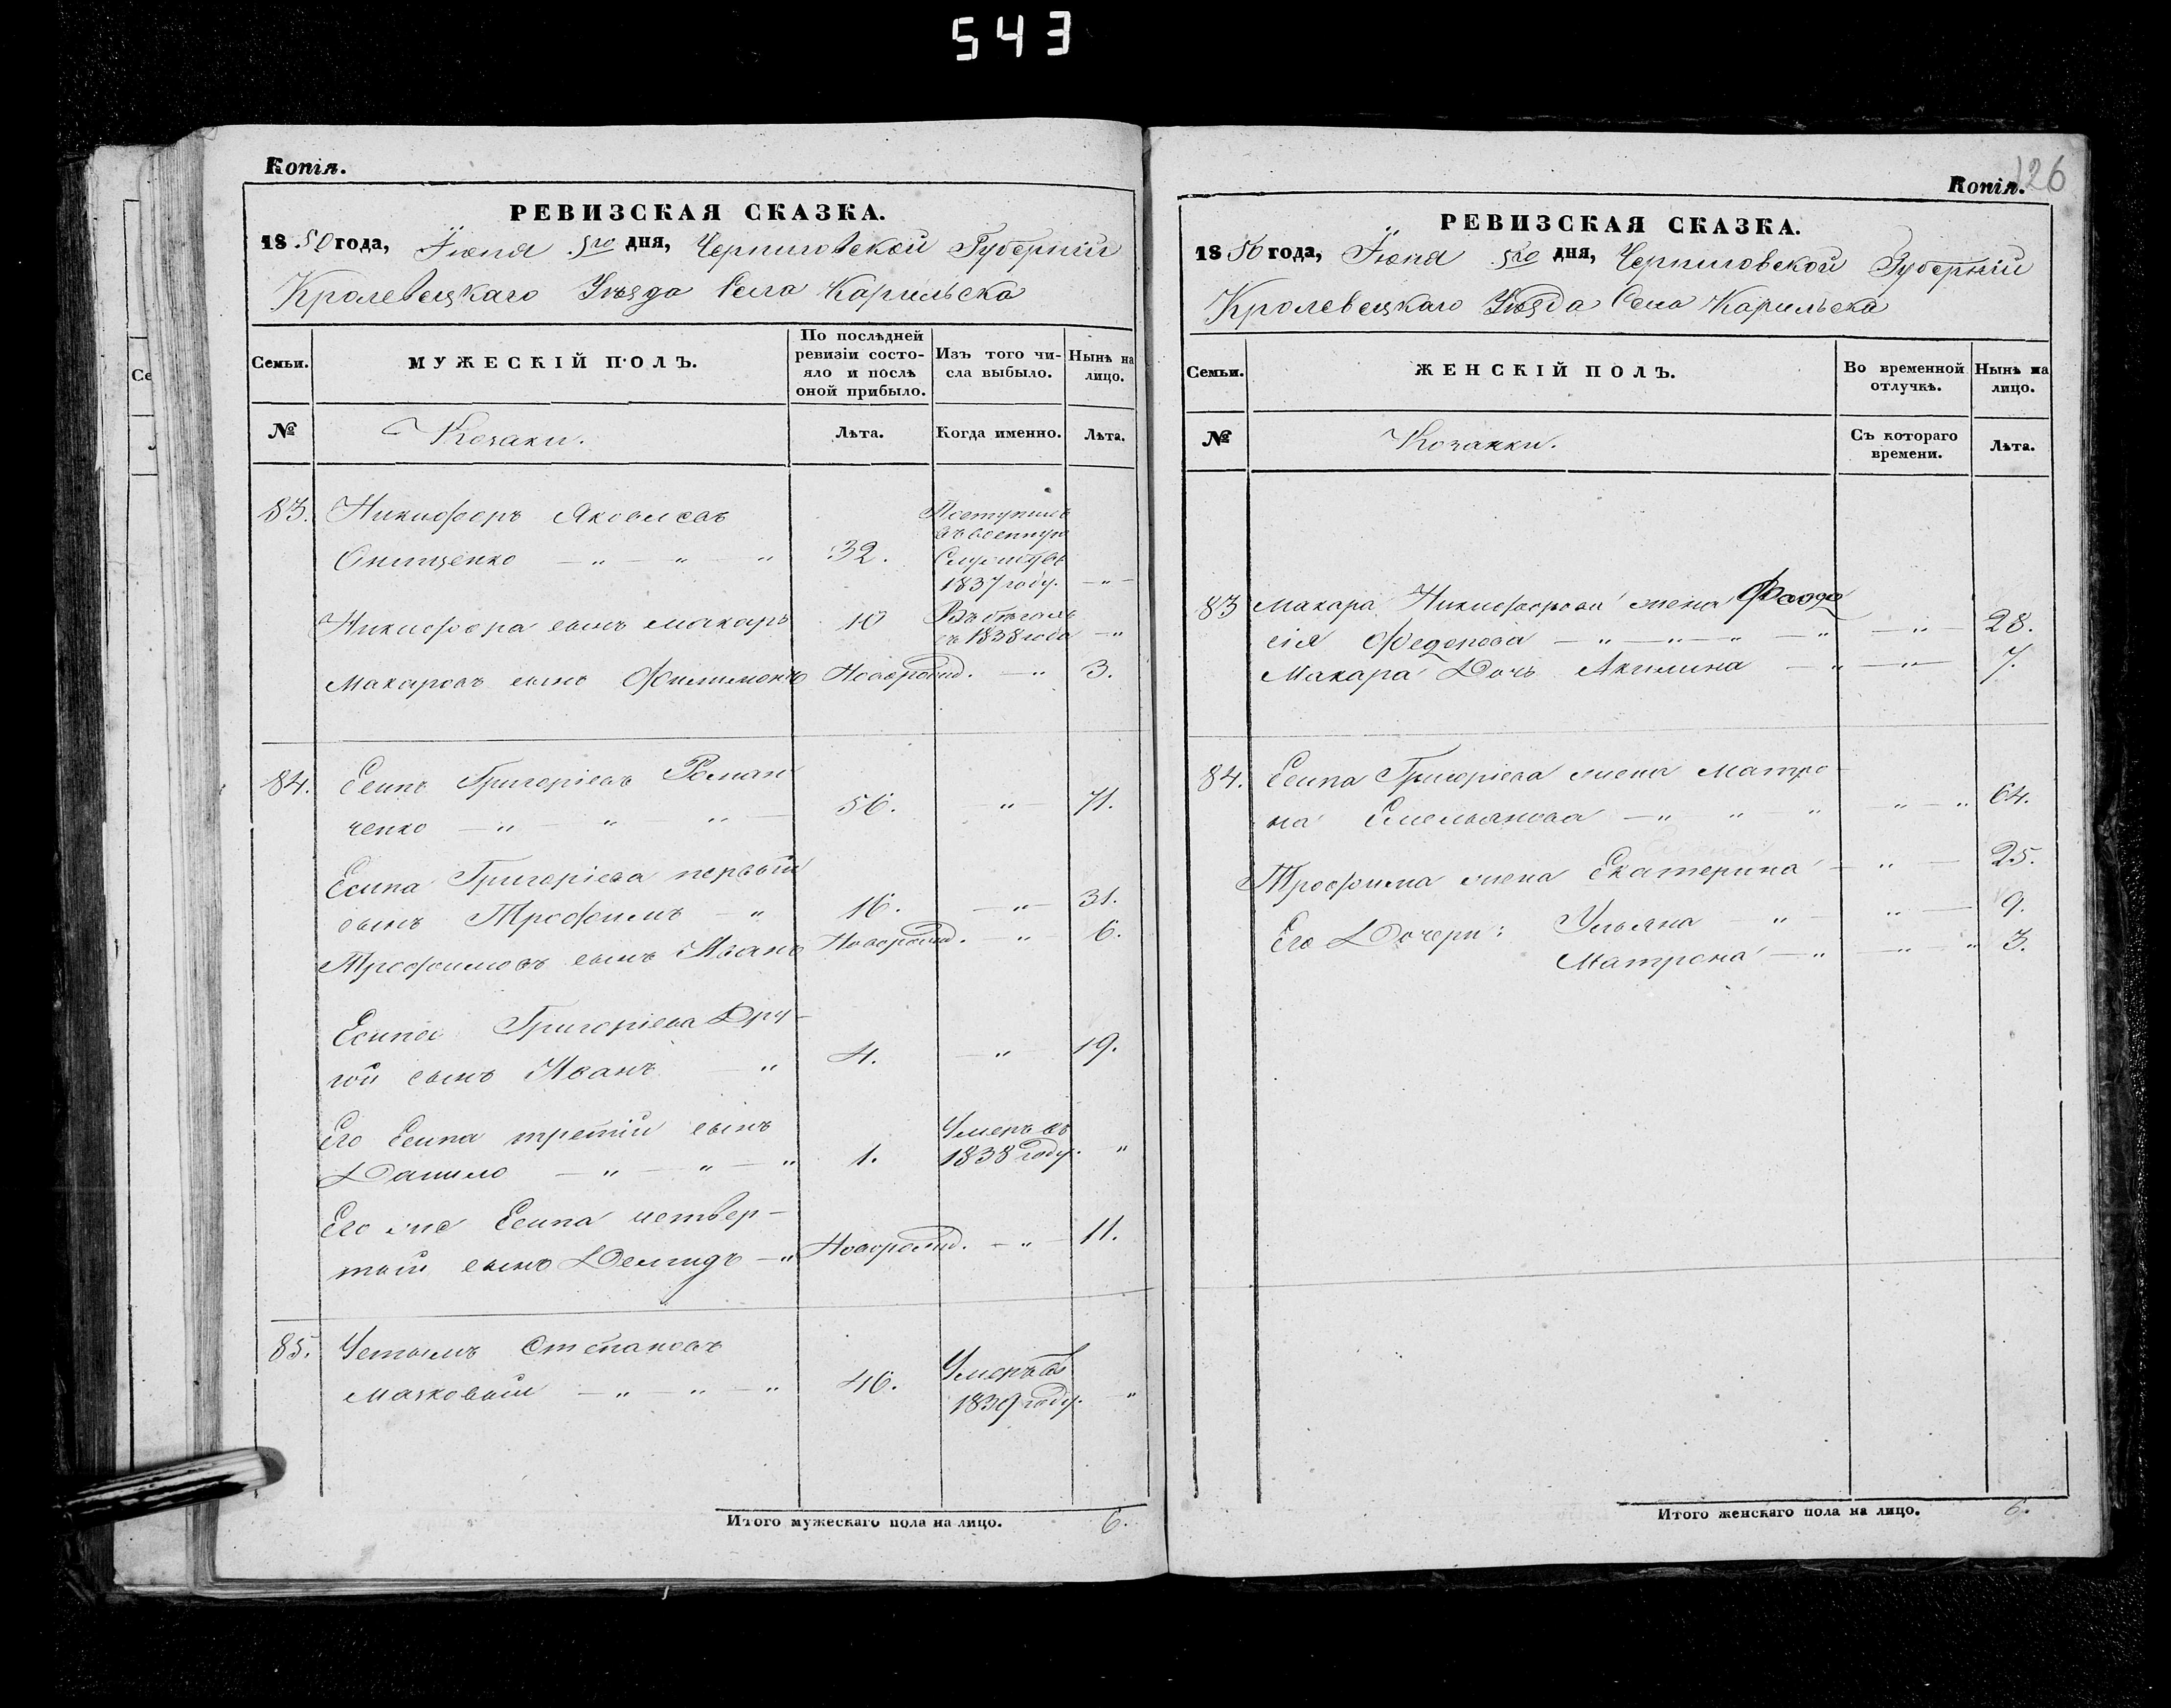 543
Копія.
РЕВИЗСКАЯ СКАЗКА.
1850 года, Іюня 5го дня, Черниговской Губерніи
Кролевецкаго Уѣзда Села Карильска
Семьи.
МУЖЕСКІЙ ПОЛЪ.
По послѣдней
ревизіи состо-
яло и послѣ
оной прибыло.
Изъ того чи-
сла выбыло.
Нынѣ на
лицо.
№
Козаки.
Лѣта.
Когда именно.
Лѣта.
83. Никифоръ Яковлевъ
Онищенко — " — " — " 32.
Поступилъ
въ военную
Службу въ
1837 году. — " —
Никифора сынъ Макаръ 10 Въ бѣгахъ
съ 1838 года — "
Макаровъ сынъ Филимонъ Новорожд. — " 3.
84. Есипъ Григоріевъ Роман
ченко — " — " — " — 56. — " — 71.
Есипа Григоріева первый
сынъ Трофимъ — " 16. — " — 31.
Трофимовъ сынъ Иванъ Новорожд. — " 6.
Есипа Григоріева Дру-
гой сынъ Иванъ — " 4. — " — 19.
Его Есипа третій сынъ
Данило — " — " — " 1. Умеръ въ
1838 году. "
Его же Есипа четвер-
тый сынъ Демидъ — " Новорожд. — " — 11.
85. Устимъ Степановъ
Мачковый — " " — " 46. Умеръ въ
1839 году. "
Итого мужескаго пола на лицо. 6.
126
Копія.
РЕВИЗСКАЯ СКАЗКА.
1850 года, Іюня 5го дня, Черниговской Губерніи
Кролевецкаго Уѣзда Села Карильска
Семьи.
ЖЕНСКІЙ ПОЛЪ.
Во временной
отлучкѣ.
Нынѣ на
лицо.
№
Козачки.
Съ котораго
времени.
Лѣта.
83 Макара Никифорова жена Феодо
сія Федорова — " — " — " — " — " — 28.
Макара Дочь Акилина — " — " — 7.
84. Есипа Григоріева жена Матро-
на Емельянова — " " " — " — " 64.
Трофима жена Екатерина — " — 25.
Его Дочери: Ульяна " — " — 9.
Матрона — " — " — " 3.
Итого женскаго пола на лицо. 6.